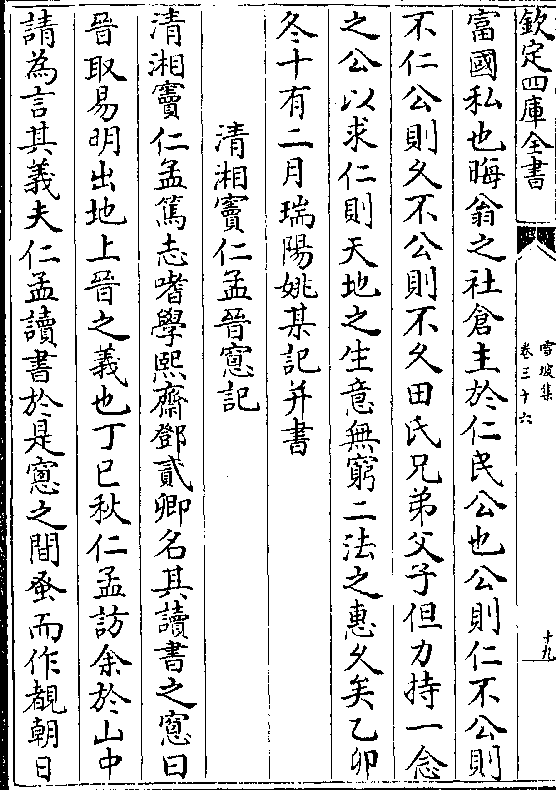 欽定四庫全書
雪坡集
卷三十六
十九
富國私也晦翁之社倉主於仁民公也公則仁不公則
不仁公則久不公則不久田氏兄弟父子但力持一念
之公以求仁則天地之生意無窮二法之惠久矣乙卯
冬十有二月瑞陽姚某記并書
清湘竇仁孟晉窻記
清湘竇仁孟篤志嗜學熙齋鄧貳卿名其讀書之窻曰
晉取易明出地上晉之義也丁巳秋仁孟訪余於山中
請為言其義夫仁孟讀書於是窻之間蚤而作覩朝日